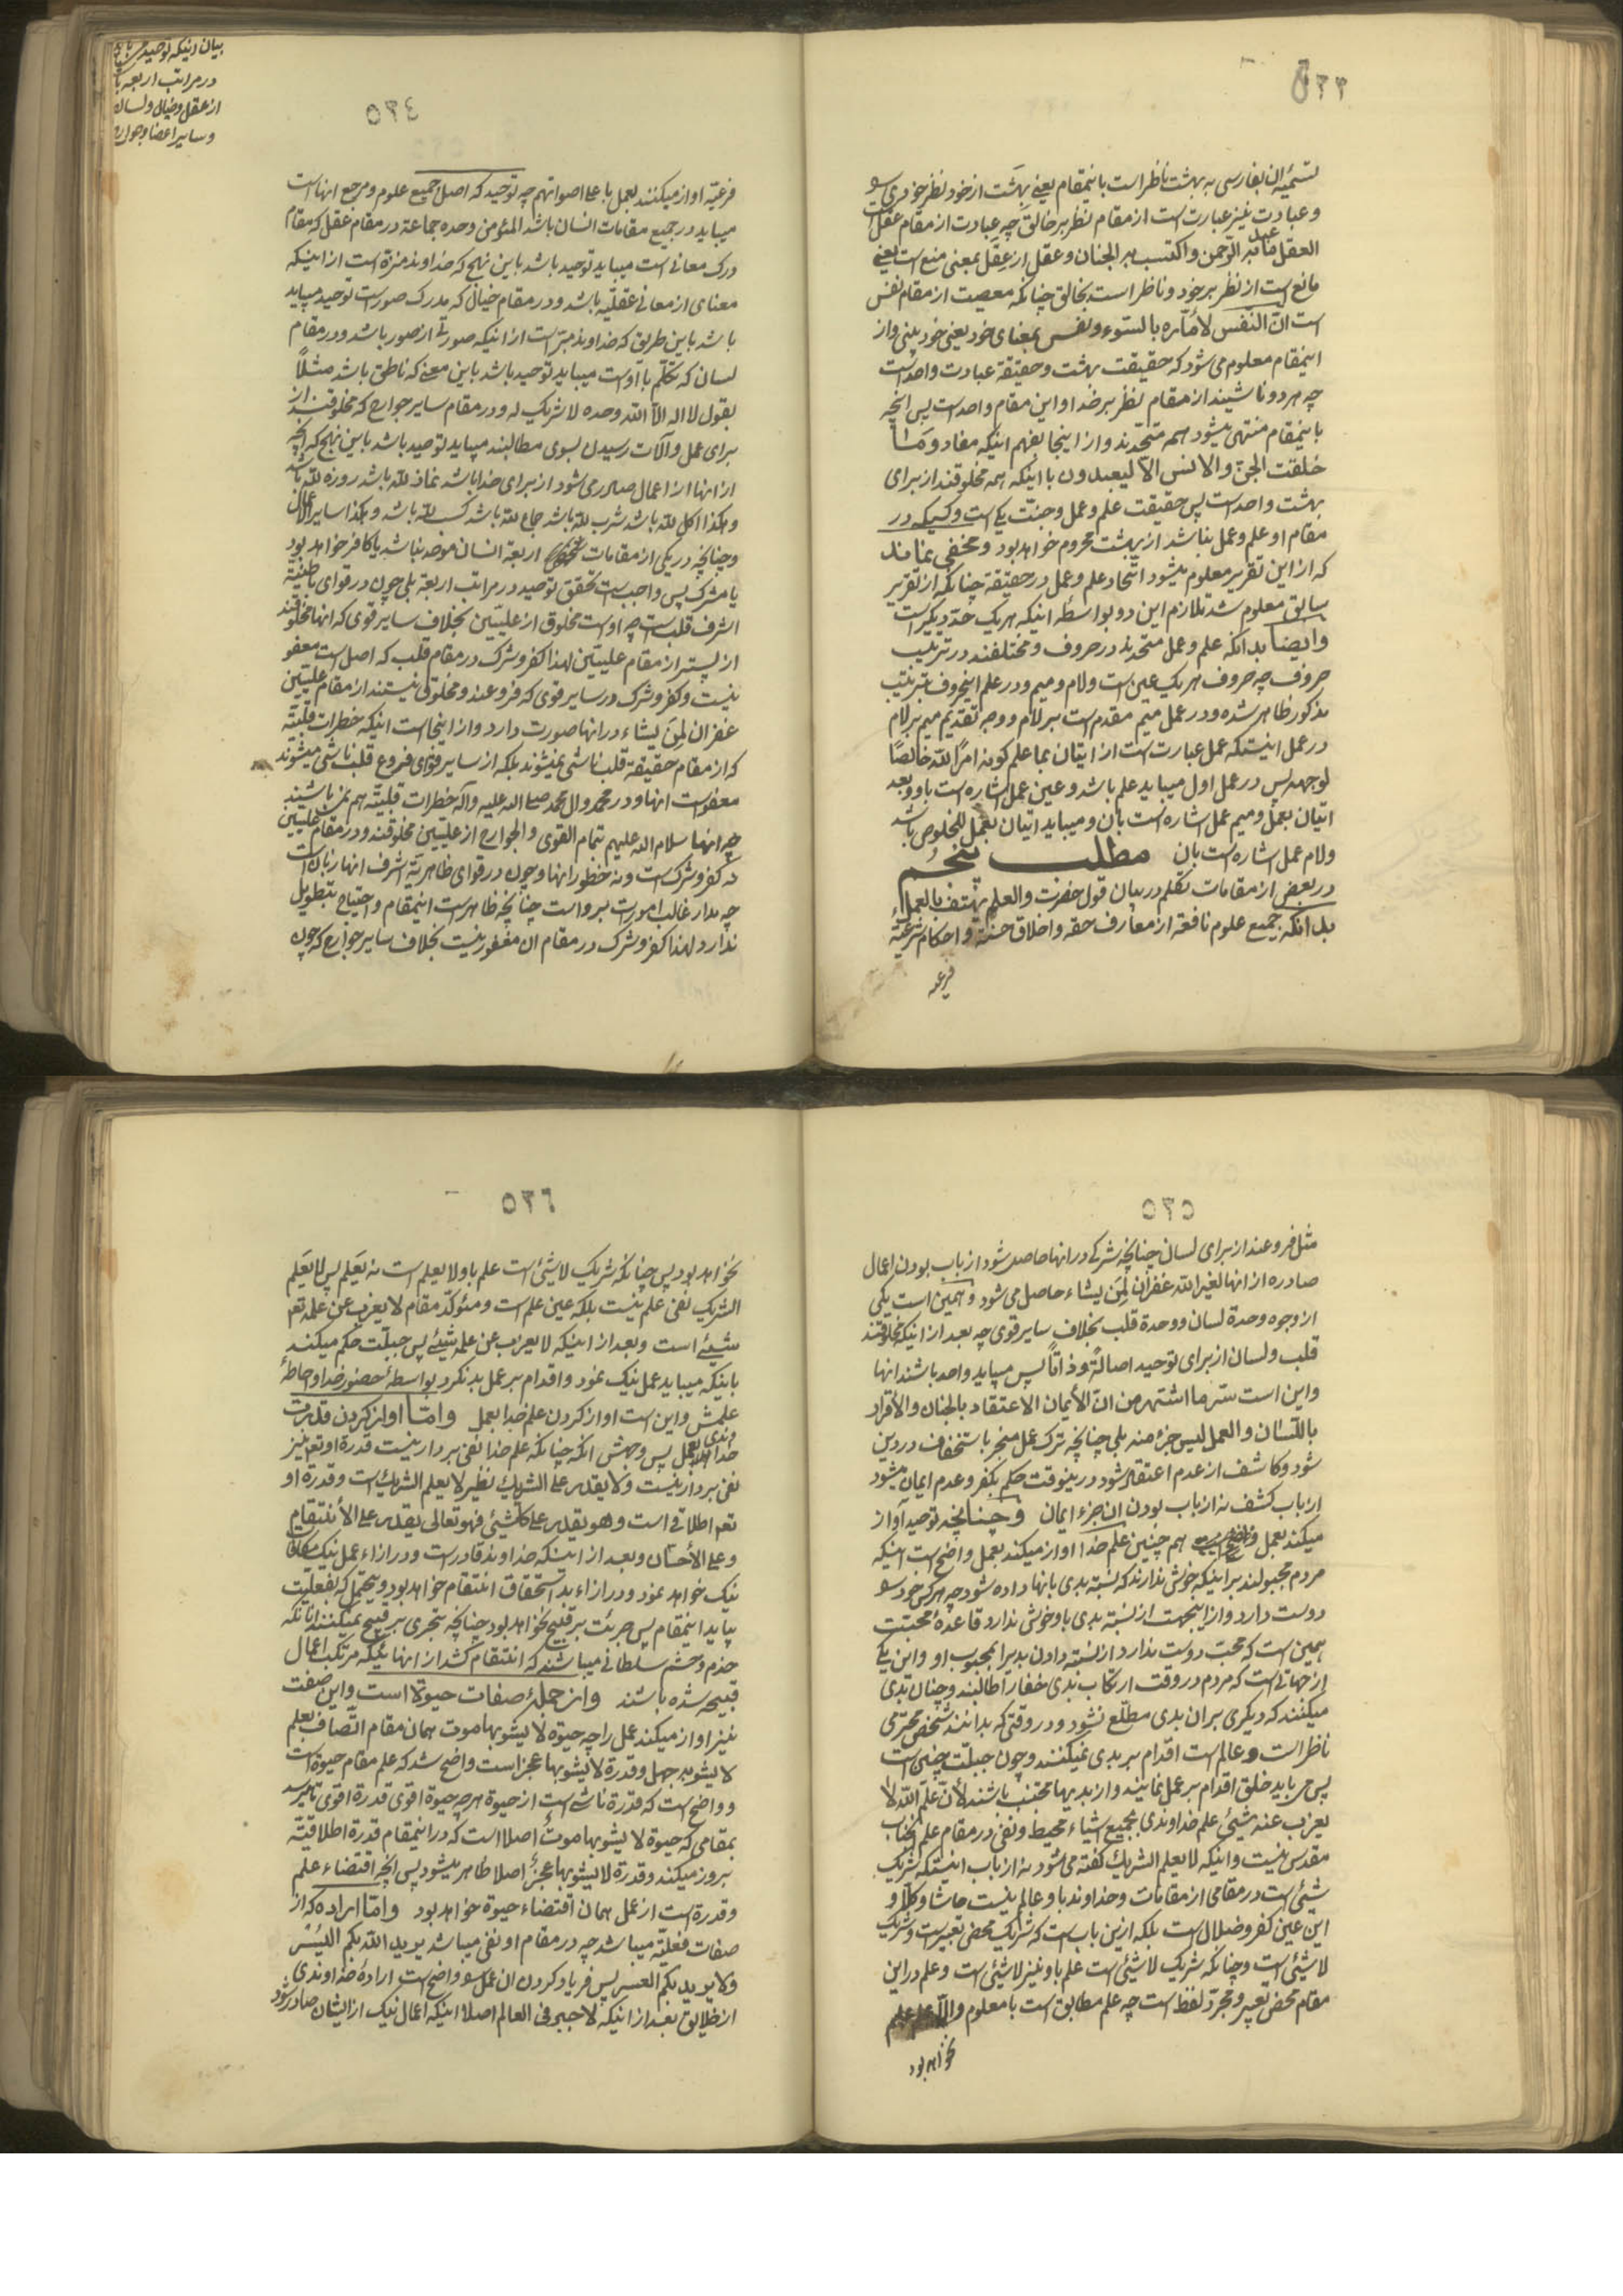 ۵۳۳
تسمیه ان بفارسی به بهشت ناظر است باینمقام یعنی بهشت از خود نظر خود بری سو
و عبادت نیز عبارت است از مقام نظر بر خالق چه عبادت از مقام عقل است
العقل ما عبد به الرحمن و اکتسب به الجنان و عقل از عقل بمعنی منع است یعنی
مانع است از نظر بر خود و ناظر است بخالق چنانکه معصیت از مقام نفس
است ان النفس لامّاره بالسّوء و نفس بمعنای خود یعنی خود بینی و از
اینمقام معلوم می شود که حقیقت بهشت و حقیقة عبادت واحد است
چه هر دو ناشیند از مقام نظر بر خدا و این مقام واحد است پس انچه
باینمقام منتهی میشود همه متّحدند و از اینجا بفهم اینکه مفاد و ما
خلقت الجنّ والانس الّا لیعبدون با اینکه همه مخلوقند از برای
بهشت واحد است پس حقیقت علم و عمل و جنّت یکی است و کسیکه در
مقام او علم و عمل نباشد از بهشت محروم خواهد بود و مخفی نماند
که از این تقریر معلوم میشود اتّحاد علم و عمل در حقیقة چنانکه از تقریر
سابق معلوم شد تلازم این دو بواسطه اینکه هر یک حدّ دیگر است
و ایضا بدانکه علم و عمل متحدند در حروف و مختلفند در ترتیب
حروف چه حروف هر یک عین است و لام و میم و در علم اینحروف بترتیب
مذکور ظاهر شده و در عمل میم مقدم است بر لام و وجه تقدیم میم بر لام
در عمل اینستکه عمل عبارت است از ایتان بما علم کونه امرًا لله خالصًا
لوجهه پس در عمل اول میباید علم باشد و عین عمل اشاره است باو و بعد
ایتان بعمل و میم عمل اشاره است بان و میباید ایتان بعمل للخلوص باشد
ولام عمل اشاره است بان مطلب پنجم
در بعض از مقامات تکلم در بیان قول حضرت والعلم یهتف بالعمل
بدانکه جمیع علوم نافعه از معارف حقه و اخلاق حسنه و احکام شرعیّه
فرعیه
۵۳٤
بیان اینکه توحید
در مراتب اربعه
از عقل و خیال و لسان
و سایر اعضا و جوارح
فرعیّه اواز میکنند بعمل باعلا اصواتهم چه توحید که اصل جمیع علوم و مرجع انها است
میباید در جمیع مقامات انسان باشد المؤمن وحده جماعة در مقام عقل که مقام
درک معانی است میباید توحید باشد باین نهج که خداوند منزه است از اینکه
معنای از معانی عقلیّه باشد و در مقام خیال که مدرک صور است توحید میباید
باشد باین طریق که خداوند مبرّاست از اینکه صورتی از صور باشد و در مقام
لسان که تکلّم با اوست میباید توحید باشد باین معنی که ناطق باشد مثلاً
بقول لا اله الا الله وحده لا شریک له و در مقام سایر جوارح که مخلوقند از
برای عمل و آلات رسیدن بسوی مطالبند میباید توحید باشد باین نهج که انچه
از انها از اعمال صادر می شود از برای خدا باشد نماز لله باشد روزه لله باشد
و هکذا اکل لله باشد شرب لله باشد جماع لله باشد کسب لله باشد و هکذا سایر اعمال
و چنانچه در یکی از مقامات اربعة انسان موحد نباشد یا کافر خواهد بود
یا مشرک پس واجب است تحقق توحید در مراتب اربعة بلی چون در قوای باطنیّة
اشرف قلب است چه اوست مخلوق از علیّین بخلاف سایر قوی که انها مخلوقند
از پستر از مقام علیّین لهذا کفر و شرک در مقام قلب که اصل است معفو
نیست و کفر و شرک در سایر قوی که فروعند و مخلوق نیستند از مقام علیّین
غفران لمن یشاء در انها صورت دارد و از اینجا است اینکه خطرات قلبیّه
که از مقام حقیقة قلب ناشی نمیشوند بلکه از سایر قوای فروع قلب ناشی میشوند
معفو است انها و در محمد وال محمد صلی الله علیه وآله خطرات قلبیّه هم نمیباشند
چه انها سلام الله علیهم بتمام القوی والجوارح از علیّین مخلوقند و در مقام علیّین
نه کفر و شرک است و نه خطور انها و چون در قوای ظاهریّة اشرف انها زبان است
چه مدار غالب امور است بر و است چنانچه ظاهر است اینمقام و احتیاج بتطویل
ندارد لهذا کفر و شرک در مقام ان مغفور نیست بخلاف سایر جوارح که چون
۵۳۵
مثل فروعند از برای لسان چنانچه شرکی در انها حاصل شود از باب بودن اعمال
صادره از انها لغیر الله غفران لمن یشاء حاصل می شود و همین است یکی
از وجوه وحدة لسان و وحدة قلب بخلاف سایر قوی چه بعد از اینکه مخلوقند
قلب و لسان از برای توحید اصالةً و ذاتاً پس میباید واحد باشند انها
و این است سرّ ما اشتهر من ان الایمان الاعتقاد بالجنان والاقرار
باللسان والعمل لیس جزء منه بلی چنانچه ترک عمل منجر باستخفاف در دین
شود و کاشف از عدم اعتقاد شود در ینوقت حکم بکفر و عدم ایمان میشود
از باب کشف نه از باب بودن ان جزء ایمان و چنانچه توحید آواز
میکند بعمل هم چنین علم خدا اواز میکند بعمل و واضح است اینکه
مردم مجبولند بر اینکه خوش ندارند که نسبة بدی بانها داده شود چه هر کس خود سو
دوست دارد و از اینجهت از نسبة بدی باو خوش ندارد قاعدهٔ محبّت
همین است که محبّ دوست ندارد از نسبة دادن بد برا بمحبوب او و این یکی
از جهاتی است که مردم در وقت ارتکاب بدی خفا را طالبند و چنان بدی
میکنند که دیگری بر ان بدی مطلع نشود و در وقتی که بدانند شخص محترمی
ناظر است و عالم است اقدام بر بدی نمیکنند و چون جبلّت چنین است
پس می باید خلق اقدام بر عمل نمایند و از بدیها مجتنب باشند لأن علم الله لا
یعزب عنه شیئ علم خداوندی بجمیع اشیاء محیط و نفی در مقام علم انجناب
مقدس نیست و اینکه لا یعلم الشریک گفته می شود نه از باب اینستکه شریک
شیئ است در مقامی از مقامات و خداوند باو عالم نیست حاشا و کلّا و
این عین کفر و ضلال است بلکه ازین باب است که شریک محض تعبیر است و شریک
لا شیئ است و چنانکه شریک لا شیئ است علم باو نیز لا شیئ است و علم در این
مقام محض تعبیر و مجرّد لفظ است چه علم مطابق است با معلوم و الّا علم
نخواهد بود
۵۳٦
نخواهد بود پس چنانکه شریک لا شیئ است علم باو لا یعلم است نه یعلم پس لا یعلم
الشریک نفی علم نیست بلکه عین علم است و مؤکّد مقام لا یعزب عن علمه تعم
شیئ است و بعد از اینکه لا یعزب عن علمه شیئ پس جبلّت حکم میکند
باینکه میباید عمل نیک نمود و اقدام بر عمل بد نکرد بواسطهٔ حضور خدا و احاطهٔ
علمش و این است اواز کردن علم خدا بعمل و امّا اواز کردن قدرت
خداوندی بعمل پس وجهش انکه چنانکه علم خدا نفی بردار نیست قدرة او تعم نیز
نفی بردار نیست و لا یقدر علی الشریک نظیر لا یعلم الشریک است و قدرة او
تعم اطلاقی است و هو یقدر علی کل شیئ فهو تعالی یقدر علی الأنتقام
و علی الأحسان و بعد از اینکه خداوند قادر است و در ازاء عمل نیک مکافات
نیک خواهد نمود و در ازاء بد استحقاق انتقام خواهد بود و یحتمل که بفعلیت
بیاید اینمقام پس جرئت بر قبیح نخواهد بود چنانچه تجری بر قبیح نمیکنند انانکه
خدم و حشم سلطانی میباشند که انتقام کشد از انهائیکه مرتکب اعمال
قبیحه شده باشند و از جملهٔ صفات حیوة است و این صفت
نیز اواز میکند عمل را چه حیوة لا یشوبها موت همان مقام اتّصاف بعلم
لا یشوبه جهل و قدرة لا یشوبها عجز است و واضح شد که علم مقام حیوة است
و واضح است که قدرة ناشی است از حیوة هر چه حیوة اقوی قدرة اقوی تا برسد
بمقامی که حیوة لا یشوبها موت اصلا است که در اینمقام قدرة اطلاقیّه
بروز میکند و قدرة لا یشوبها عجز اصلا ظاهر میشود پس انچه اقتضاء علم
و قدرة است از عمل همان اقتضاء حیوة خواهد بود و امّا اراده که از
صفات فعلیّه میباشد چه در مقام او نفی میباشد یرید الله بکم الیسر
ولا یرید بکم العسر پس فریاد کردن ان عمل سو واضح است ارادهٔ خداوندی
از خلایق بعد از اینکه لا جبر فی العالم اصلا اینکه اعمال نیک از ایشان صادر شود